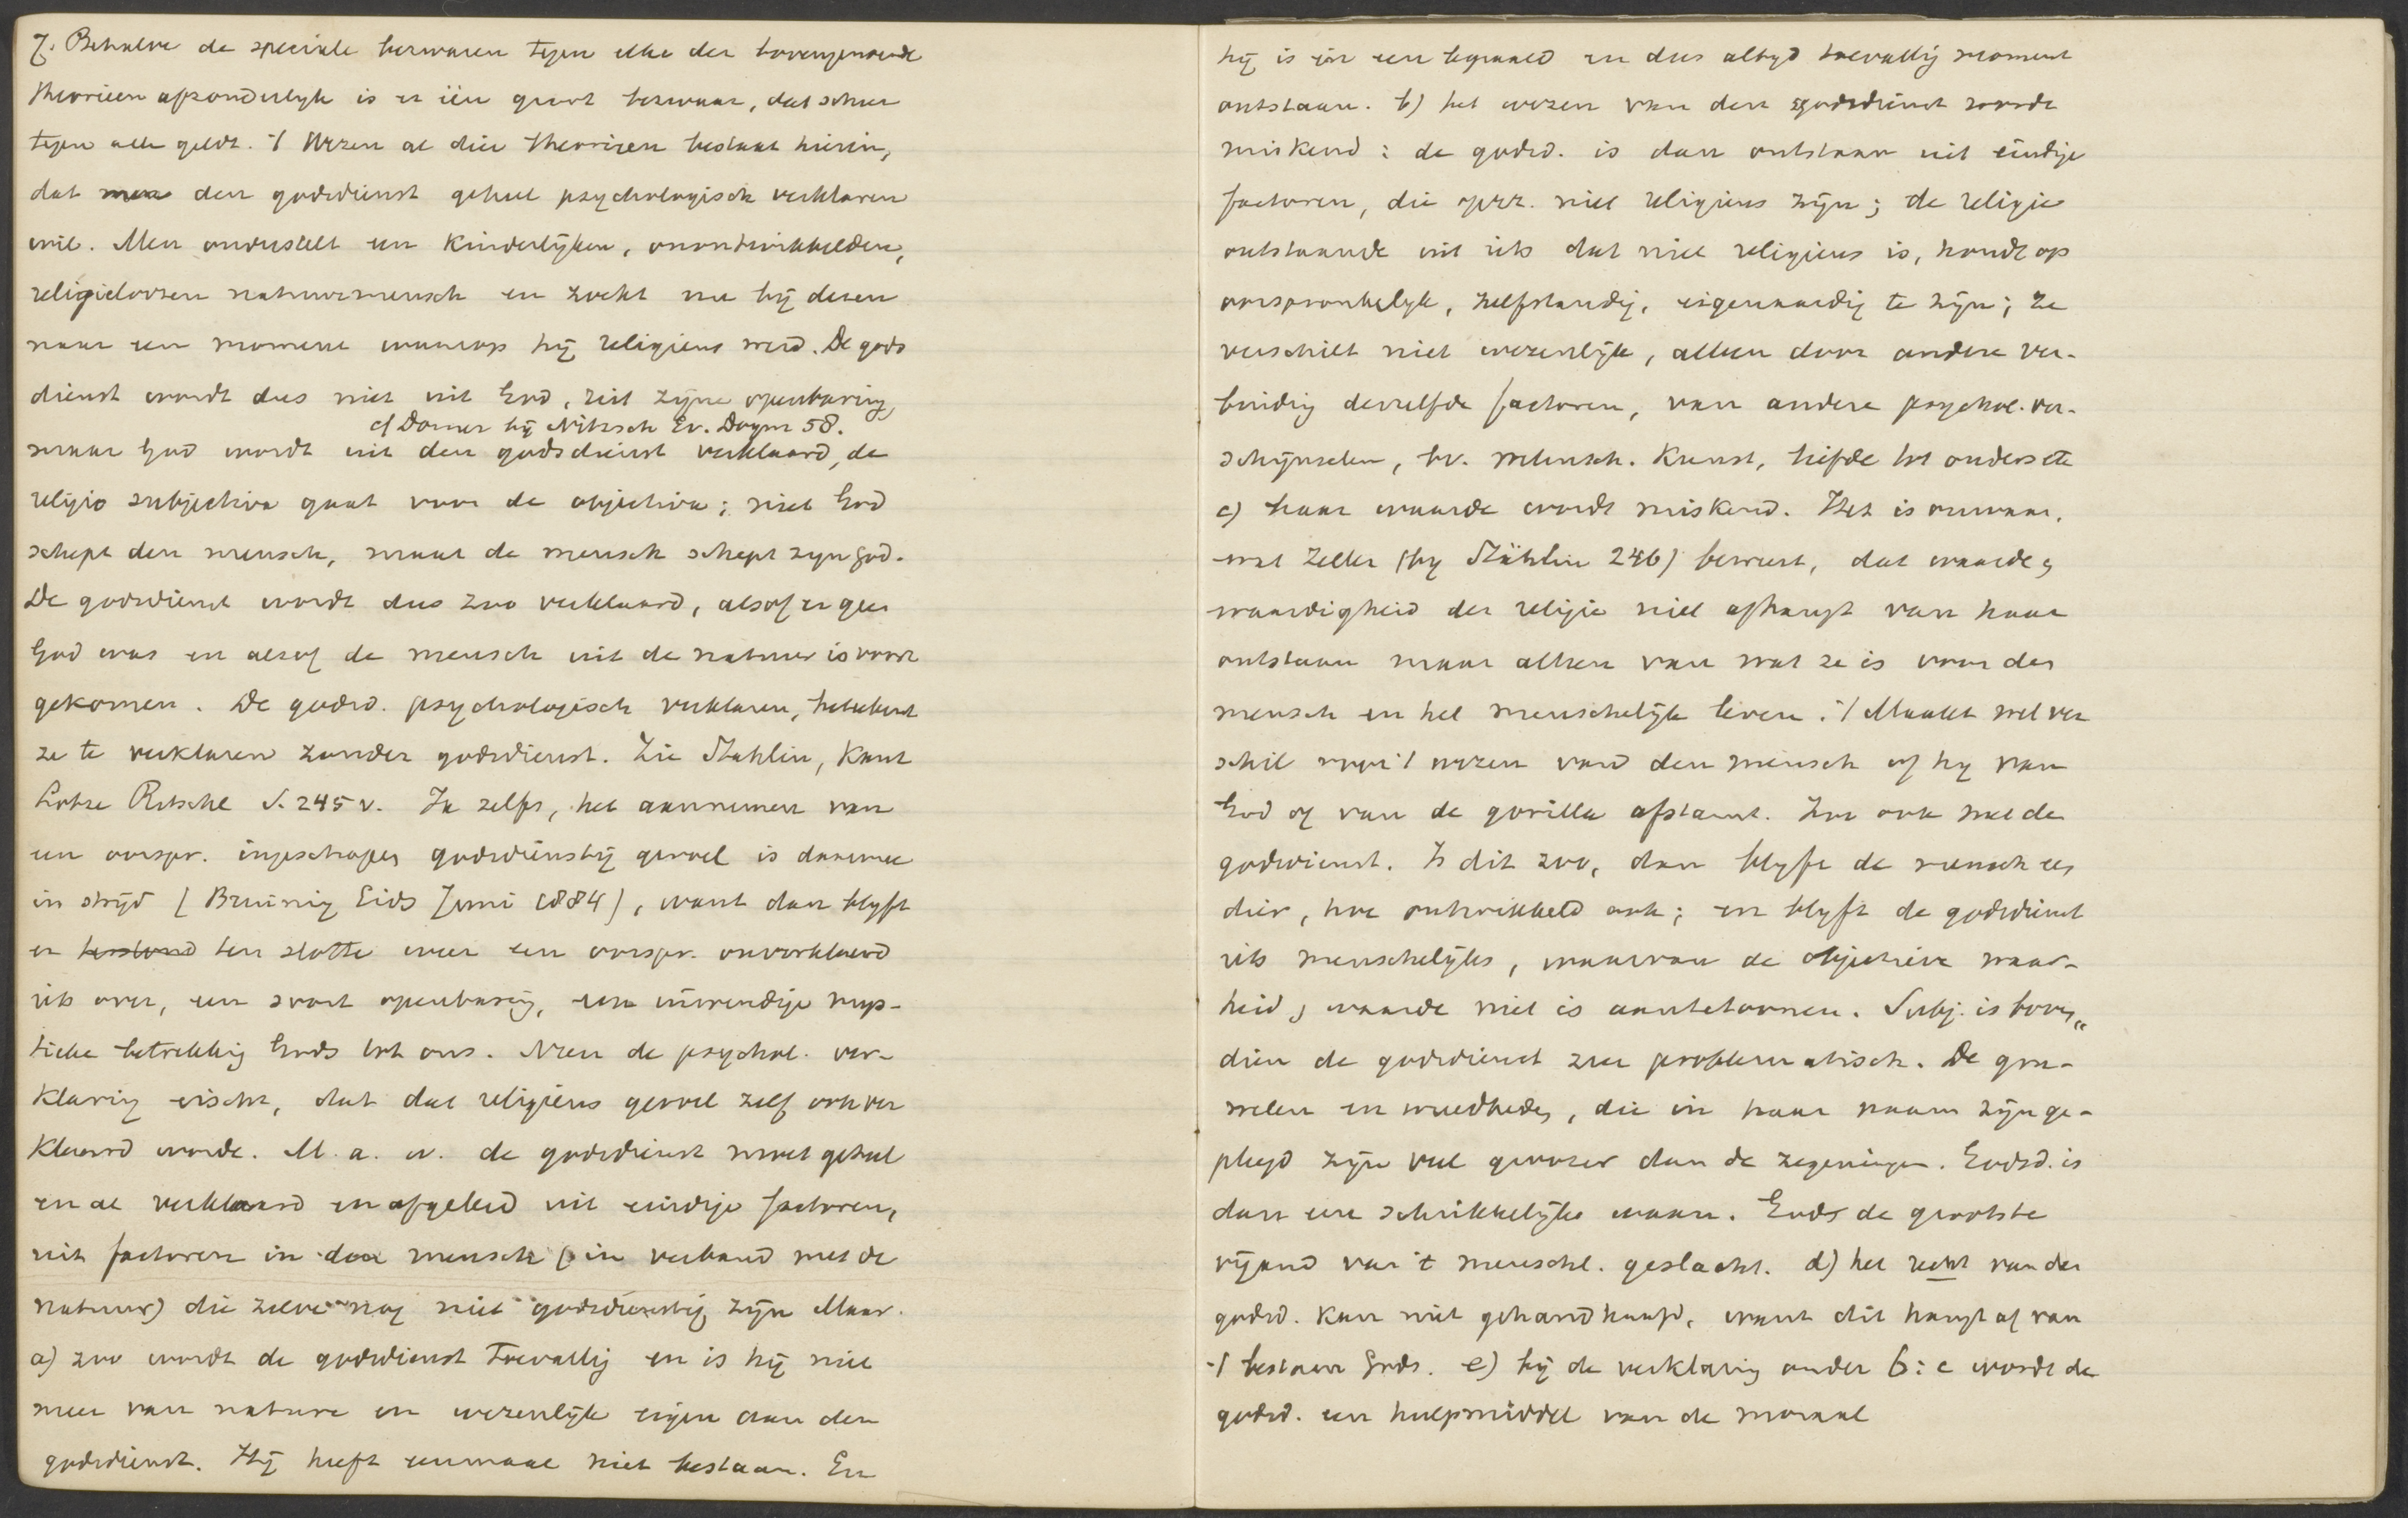 7. Behalve de speciale bezwaren tegen elke der bovengenoemde
theorieen afzonderlijk is er één groot bezwaar, dat schier
tegen alle geldt. 't Wezen al dier theorieen bestaat hierin,
dat men den godsdienst geheel psychologisch verklaren
wil. Men onderstelt een kinderlijken, onontwikkelden,
religieloozen natuurmensch en zoekt nu bij dezen
naar een moment waarop hij religieus werd. De gods
dienst wordt dus niet uit God, uit zijne openbaring,
cf Dorner bij Nitzsch Ev. Dogm 58.
maar God wordt uit den godsdienst verklaard, de
religio subjectiva gaat voor de objectiva; niet God
schept den mensch, maar de mensch schept zijn God.
De godsdienst wordt dus zoo verklaard, alsof er geen
God was en alsof de mensch uit de natuur is voort
gekomen. De godsd. psychologisch verklaren, beteekent
ze te verklaren zonder godsdienst. Zie Stahlin, Kant
Lotze Ritschl S. 245 v. Ja zelfs, het aannemen van
een oorspr. ingeschapen godsdienstig gevoel is daarmee
in strijd (Bruining Gids Juni 1884), want dan blijft
er ten slotte weer een oorspr. onverklaard
iets over, een soort openbaring, een inwendige mys-
tieke betrekking Gods tot ons. Neen de psychol. ver-
klaring eischt, dat dat religieus gevoel zelf ook ver
klaard worde. M. a. w. de godsdienst moet geheel
en al verklaard en afgeleid uit eindige factoren,
uit factoren in den mensch (in verband met de
natuur) die zelve nog niet godsdienstig zijn Maar.
a) zoo wordt de godsdienst toevallig en is hij niet
meer van nature en wezenlijk eigen aan den
godsdienst. Hij heeft eenmaal niet bestaan. En
hij is in een bepaald en dus altijd toevallig moment
ontstaan. b) het wezen van den godsdienst wordt
miskend: de godsd. is dan ontstaan uit eindige
factoren, die opzz. niet religieus zijn; de religie
ontstaande uit iets dat niet religieus is, houdt op
oorspronkelijk, zelfstandig, eigenaardig te zijn; ze
verschilt niet wezenlijk, alleen door andere ver-
binding derzelfde factoren, van andere psychol. ver-
schijnselen, bv. wetensch. Kunst, liefde tot ouders etc
c) haar waarde wordt miskend. Het is onwaar,
wat Zeller (bij Stählin 246) beweert, dat waarde &
waardigheid der religie niet afhangt van haar
ontstaan maar alleen van wat ze is voor den
mensch en het menschelijk leven. 't Maakt wel ver
schil voor 't wezen van den mensch of hij van
God of van de gorilla afstamt. Zoo ook met de
godsdienst. Is dit zoo, dan blijft de mensch een
dier, hoe ontwikkeld ook; en blijft de godsdienst
iets menschelijks, waarvan de objectieve waar-
heid & waarde niet is aantetoonen. Subj. is boven„
dien de godsdienst zeer problematisch. De gru-
welen en wreedheden, die in haar naam zijn ge-
pleegd zijn veel grooter dan de zegeningen. Godsd. is
dan een schrikkelijke waan. Gods de grootste
vijand van 't menschl. geslacht. d) het recht van den
godsd. kan niet gehandhaafd, want dit hangt af van
't bestaan Gods. e) bij de verklaring onder 6: c wordt de
godsd. een hulpmiddel van de moraal